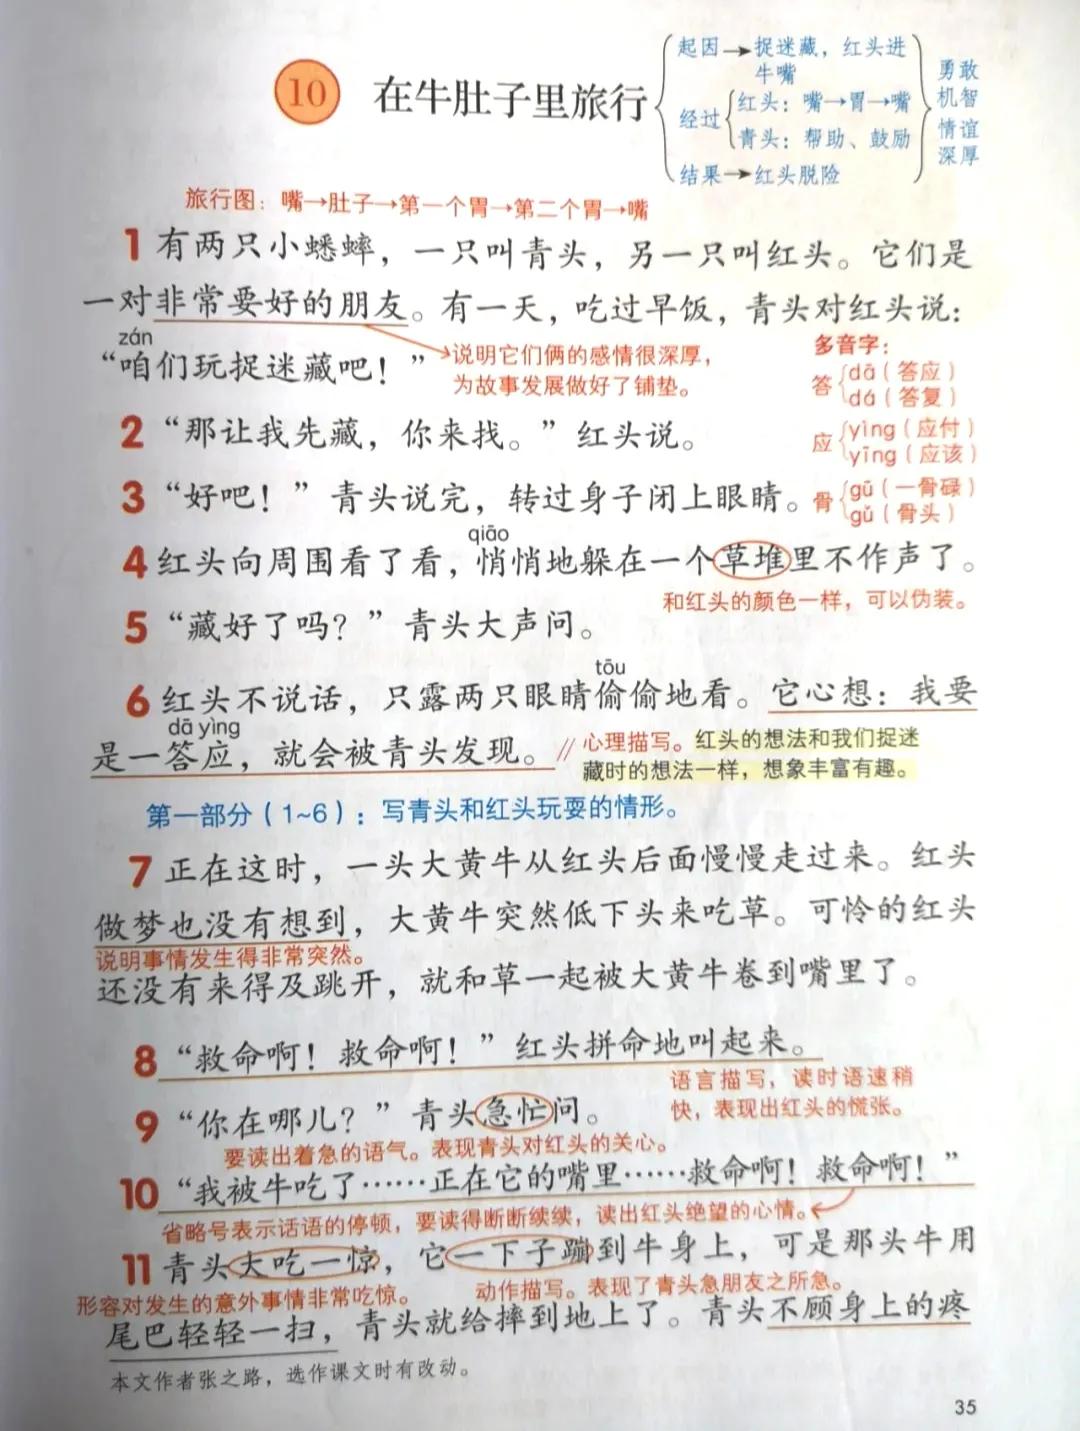 10 在牛肚子里旅行
起因→捉迷藏，红头进
牛嘴
经过
红头：嘴→胃→嘴
青头：帮助、鼓励
结果→红头脱险
勇敢
机智
情谊
深厚
旅行图：嘴→肚子→第一个胃→第二个胃→嘴
1 有两只小蟋蟀，一只叫青头，另一只叫红头。它们是
一对非常要好的朋友。有一天，吃过早饭，青头对红头说：
zán
“咱们玩捉迷藏吧！”
说明它们俩的感情很深厚，
为故事发展做好了铺垫。
多音字：
答
dā（答应）
dá（答复）
应
yìng（应付）
yīng（应该）
骨
gū（一骨碌）
gǔ（骨头）
2 “那让我先藏，你来找。”红头说。
3 “好吧！”青头说完，转过身子闭上眼睛。
qiāo
4 红头向周围看了看，悄悄地躲在一个草堆里不作声了。
和红头的颜色一样，可以伪装。
5 “藏好了吗？”青头大声问。
tōu
6 红头不说话，只露两只眼睛偷偷地看。它心想：我要
dā yìng
是一答应，就会被青头发现。
// 心理描写。红头的想法和我们捉迷
藏时的想法一样，想象丰富有趣。
第一部分（1~6）：写青头和红头玩耍的情形。
7 正在这时，一头大黄牛从红头后面慢慢走过来。红头
做梦也没有想到，大黄牛突然低下头来吃草。可怜的红头
说明事情发生得非常突然。
还没有来得及跳开，就和草一起被大黄牛卷到嘴里了。
8 “救命啊！救命啊！”红头拼命地叫起来。
语言描写，读时语速稍
快，表现出红头的慌张。
9 “你在哪儿？”青头急忙问。
要读出着急的语气。表现青头对红头的关心。
10 “我被牛吃了……正在它的嘴里……救命啊！救命啊！”
省略号表示话语的停顿，要读得断断续续，读出红头绝望的心情。
11 青头大吃一惊，它一下子蹦到牛身上，可是那头牛用
形容对发生的意外事情非常吃惊。
动作描写。表现了青头急朋友之所急。
尾巴轻轻一扫，青头就给摔到地上了。青头不顾身上的疼
本文作者张之路，选作课文时有改动。
35